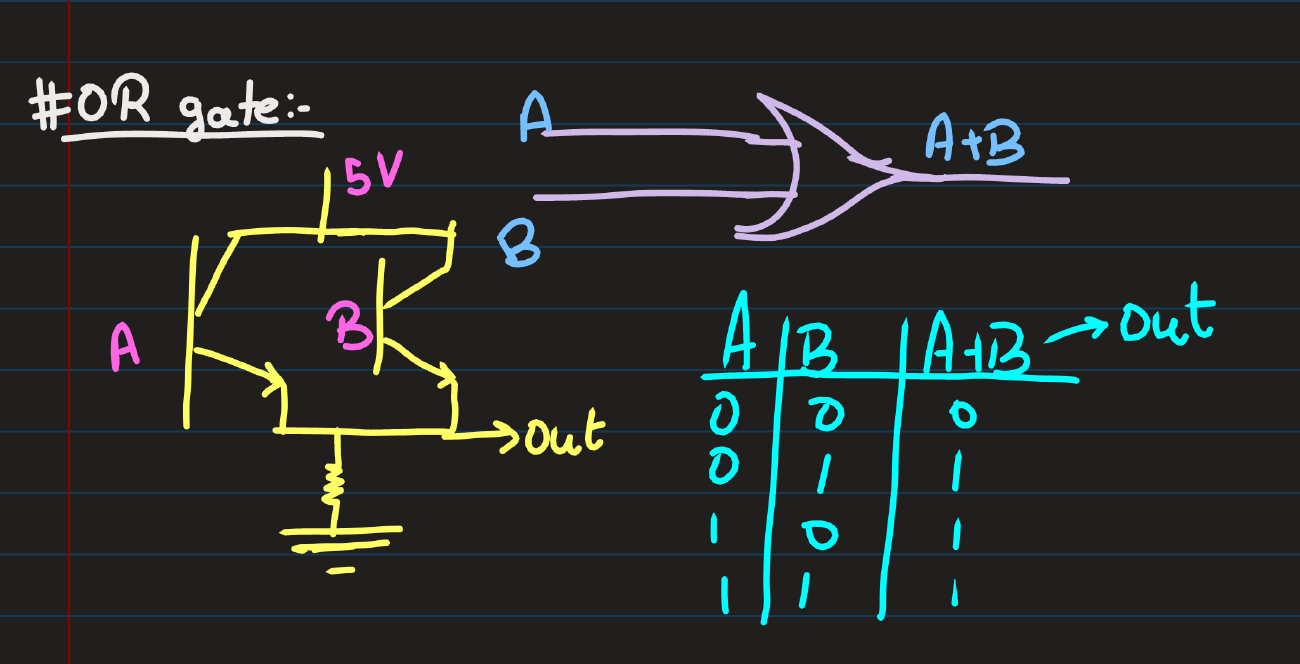 #OR gate:-
5V
A
B
Out
A
B
A+B
A B A+B → Out
0 0 0
0 1 1
1 0 1
1 1 1